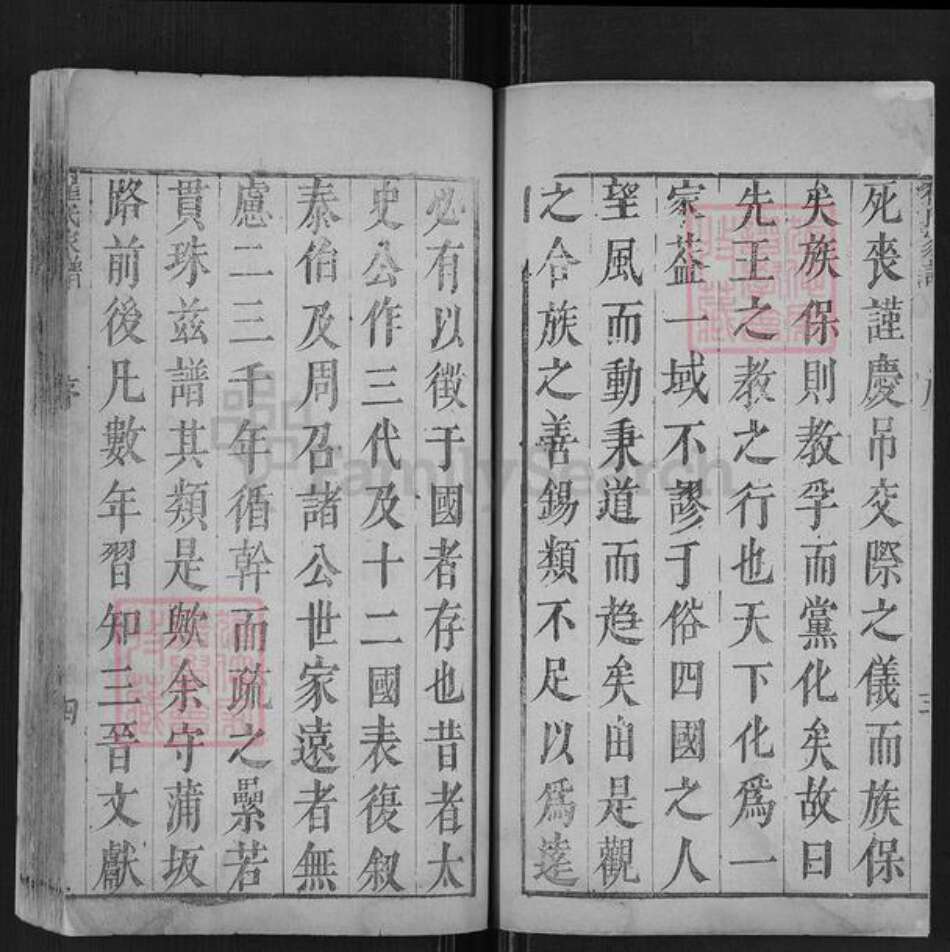 死喪謹慶吊交際之儀而族保
矣族保則教孚而黨化矣故曰
先王之教之行也天下化爲一
家葢一域不謬于俗四國之人
望風而動秉道而趋矣由是觀
之合族之善錫類不足以爲逹
必有以徵于國者存也昔者太
史公作三代及十二國表復叙
泰伯及周召諸公世家遠者無
慮二三千年循幹而疏之纍若
貫珠兹譜其類是歟余守蒲坂
路前後凡數年習知三晉文獻
氏家譜
序
四
FamilySearch